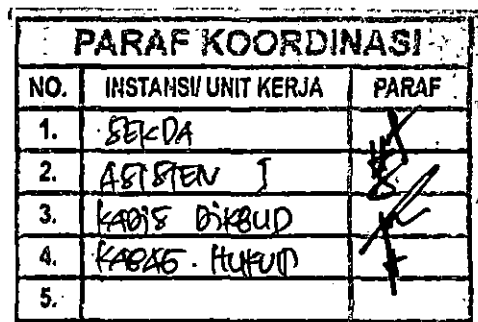 PARAF KOORDINASI
NO. INSTANSI/ UNIT KERJA PARAF
1. SEKDA
2. ASISTEN I
3. KADIS DIKBUD
4. KABAG. HUKUM
5.